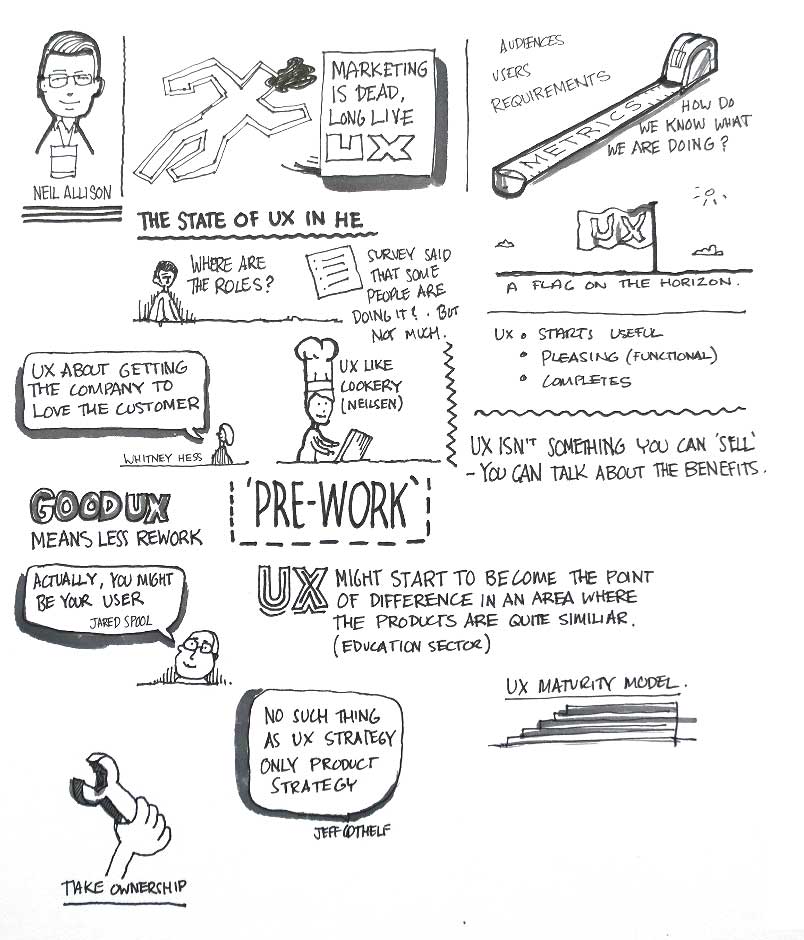 NEIL ALLISON
MARKETING
IS DEAD,
LONG LIVE
UX
AUDIENCES
USERS
REQUIREMENTS
METRICS
HOW DO
WE KNOW WHAT
WE ARE DOING?
THE STATE OF UX IN HE
WHERE ARE
THE ROLES?
SURVEY SAID
THAT SOME
PEOPLE ARE
DOING IT!. BUT
NOT MUCH.
UX
A FLAG ON THE HORIZON.
UX • STARTS USEFUL
• PLEASING (FUNCTIONAL)
• COMPLETES
UX ABOUT GETTING
THE COMPANY TO
LOVE THE CUSTOMER
WHITNEY HESS
UX LIKE
COOKERY
(NEILSEN)
UX ISN'T SOMETHING YOU CAN 'SELL'
- YOU CAN TALK ABOUT THE BENEFITS.
GOOD UX
MEANS LESS REWORK
'PRE-WORK'
ACTUALLY, YOU MIGHT
BE YOUR USER
JARED SPOOL
UX MIGHT START TO BECOME THE POINT
OF DIFFERENCE IN AN AREA WHERE
THE PRODUCTS ARE QUITE SIMILIAR.
(EDUCATION SECTOR)
UX MATURITY MODEL.
NO SUCH THING
AS UX STRATEGY
ONLY PRODUCT
STRATEGY
JEFF GOTHELF
TAKE OWNERSHIP